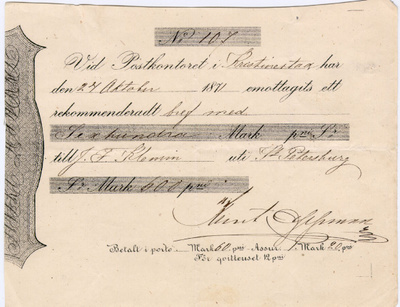 No 107
Vid Postkontoret i Kristinestad har
den 27 Oktober 187 emottagits ett
rekommenderadt bref med
Sexhundra Mark pni Kr
till J. F. Klemm uti St Petersburg
Fr Mark 600 pni
Betalt i porto Mark 60 pni Assur. Mark 20 pni
För qvittenset 12 pni